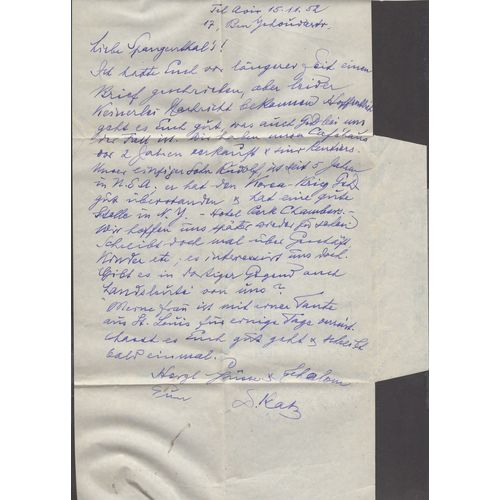 Tel Aviv 15.11.52
17, Ben Jehudastr.
Liebe Spangenthal's!
Ich hatte Euch vor längerer Zeit einen
Brief geschrieben, aber leider
keinerlei Nachricht bekommen. Hoffentlich
geht es Euch gut, was auch G.s.D. bei uns
der Fall ist. Wir haben unser Caféhaus
vor 2 Jahren verkauft & sind Rentiers.
Unser einziger Sohn Rudolf, ist seit 5 Jahren
in U.S.A. er hat den Korea-Krieg
gut überstanden & hat eine gute
Stelle in N.Y. - Hotel Park Chambers.-
Wir hoffen uns später wieder zu sehen
Schreibt doch mal über Geschäft
Kinder etc; es interessiert uns doch.
Gibt es in dortiger Gegend auch
Landsleute von uns?
Meine Frau ist mit einer Tante
aus St. Louis für einige Tage verreist.
Lasst es Euch gut gehn & schreibt
bald einmal.
Herzl Grüsse & Schalom
Euer
S. Katz